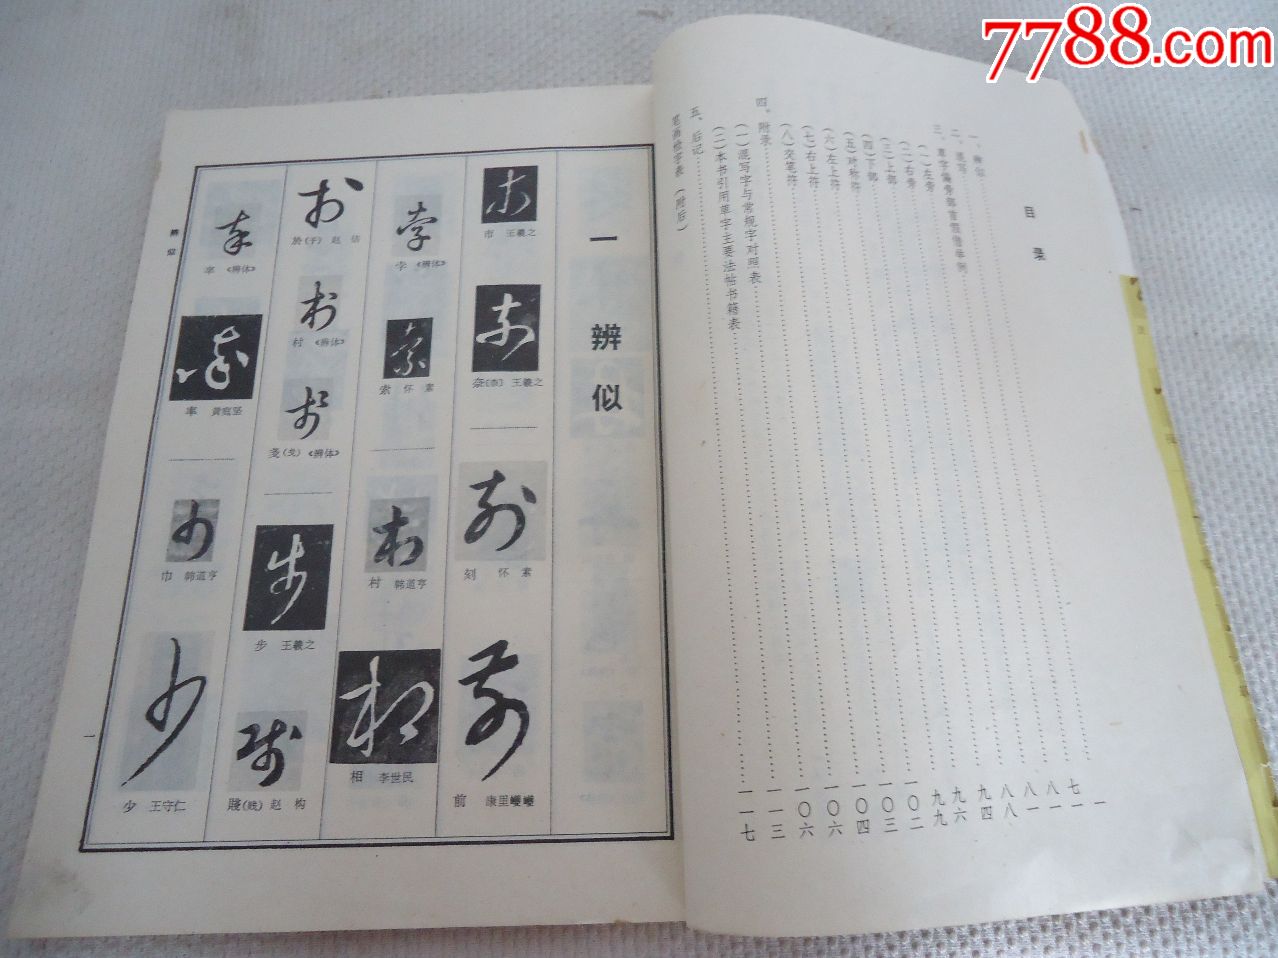 7788.com
目录
一、辨似……一
二、混写……七一
三、草字偏旁部首假借举例……八一
(一)左旁……八一
(二)右旁……八八
(三)上部……九四
(四)下部……九六
(五)对称符……九九
(六)左上符……一〇二
(七)右上符……一〇三
(八)交笔符……一〇四
四、附录……一〇六
(一)混写字与常规字对照表……一〇六
(二)本书引用草字主要法帖书籍表……一一三
五、后记……一一七
笔画检字表(附后)
一 辨似
市 王羲之
奈(柰) 王羲之
刻 怀素
前 康里巎巎
字 《辨体》
索 怀素
村 韩道亨
相 李世民
於(于) 赵佶
村 《辨体》
戔(戋) 《辨体》
步 王羲之
賤(贱) 赵构
率 《辨体》
率 黄庭坚
巾 韩道亨
少 王守仁
辨似
一